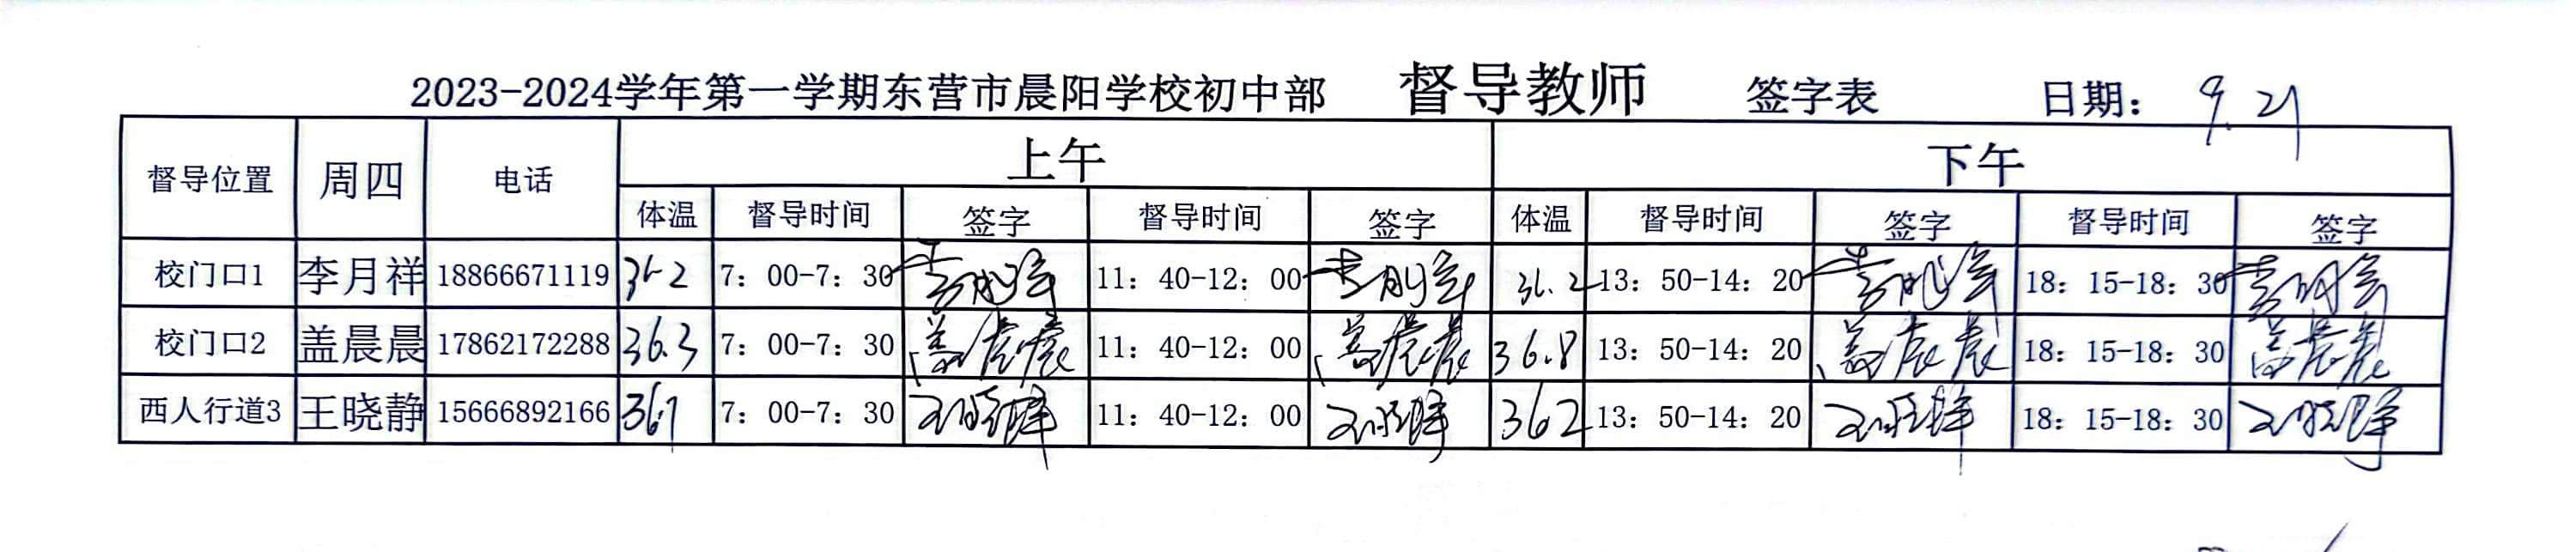 2023-2024学年第一学期东营市晨阳学校初中部 督导教师 签字表 日期： 9.21
督导位置 周四 电话 上午 下午
体温 督导时间 签字 督导时间 签字 体温 督导时间 签字 督导时间 签字
校门口1 李月祥 18866671119 36.2 7：00-7：30 李月祥 11：40-12：00 李月祥 36.2 13：50-14：20 李月祥 18：15-18：30 李月祥
校门口2 盖晨晨 17862172288 36.3 7：00-7：30 盖晨晨 11：40-12：00 盖晨晨 36.8 13：50-14：20 盖晨晨 18：15-18：30 盖晨晨
西人行道3 王晓静 15666892166 36.1 7：00-7：30 王晓静 11：40-12：00 王晓静 362 13：50-14：20 王晓静 18：15-18：30 王晓静